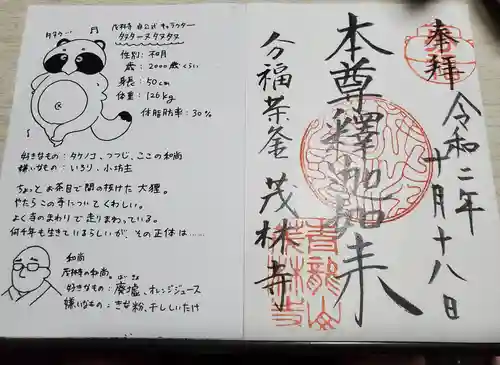 奉拝
令和二年
十月十八日
本尊釋迦如来
分福茶釜 茂林寺
茂林寺 自公式キャラクター
性別:不明
歳:2000歳くらい
身長:50cm
体重:126kg
体脂肪率:30%
好きなもの:タケノコ、つつじ、ここの和尚
嫌いなもの:いろり、小坊主
ちょっとお茶目で間の抜けた大狸。
やたらこの寺についてくわしい。
よく寺のまわりで走りまわっている。
何千年も生きているらしいが、その正体は……
和尚
茂林寺の和尚。
好きなもの:廃墟、オレンジジュース
嫌いなもの:きな粉、干ししいたけ